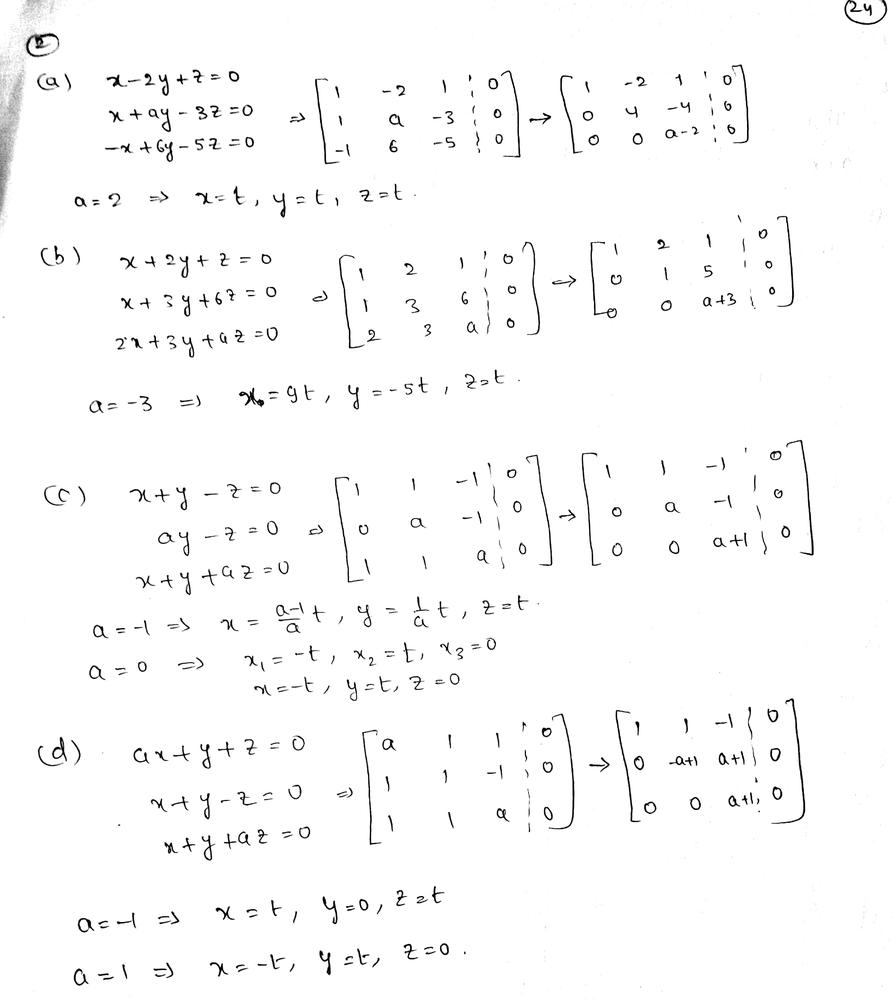 24
2
(a) x-2y+z=0
x+ay-3z=0 ⇒ [1 -2 1 ¦ 0; 1 a -3 ¦ 0; -1 6 -5 ¦ 0] → [1 -2 1 ¦ 0; 0 4 -4 ¦ 0; 0 0 a-2 ¦ 0]
-x+6y-5z=0
a=2 ⇒ x=t, y=t, z=t.
(b) x+2y+z=0
x+3y+6z=0 ⇒ [1 2 1 ¦ 0; 1 3 6 ¦ 0; 2 3 a ¦ 0] → [1 2 1 ¦ 0; 0 1 5 ¦ 0; 0 0 a+3 ¦ 0]
2x+3y+az=0
a=-3 ⇒ x=9t, y=-5t, z=t.
(c) x+y-z=0
ay-z=0 ⇒ [1 1 -1 ¦ 0; 0 a -1 ¦ 0; 1 1 a ¦ 0] → [1 1 -1 ¦ 0; 0 a -1 ¦ 0; 0 0 a+1 ¦ 0]
x+y+az=0
a=-1 ⇒ x = (a-1)/a t, y = 1/a t, z=t.
a=0 ⇒ x₁=-t, x₂=t, x₃=0
x=-t, y=t, z=0
(d) ax+y+z=0
x+y-z=0 ⇒ [a 1 1 ¦ 0; 1 1 -1 ¦ 0; 1 1 a ¦ 0] → [1 1 -1 ¦ 0; 0 -a+1 a+1 ¦ 0; 0 0 a+1 ¦ 0]
x+y+az=0
a=-1 ⇒ x=t, y=0, z=t
a=1 ⇒ x=-t, y=t, z=0.